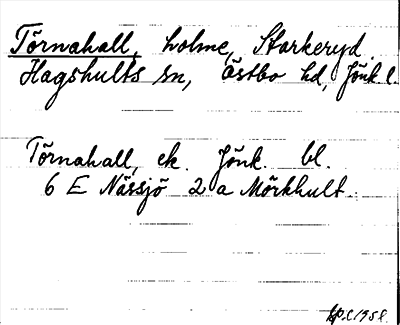 Törnahall, holme, Starkeryd.
Hagshults sn, Östbo hd, Jönk. l.
Törnahall, ek. Jönk. bl.
6 E Nässjö 2 a Mörkhult.
1958.